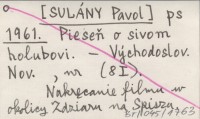 [SULÁNY Pavol] ps
1961. Pieseň o sivom
holubovi. – Východoslov.
Nov., nr (8I).
Nakręcanie filmu w
okolicy Zdziaru na Spiszu